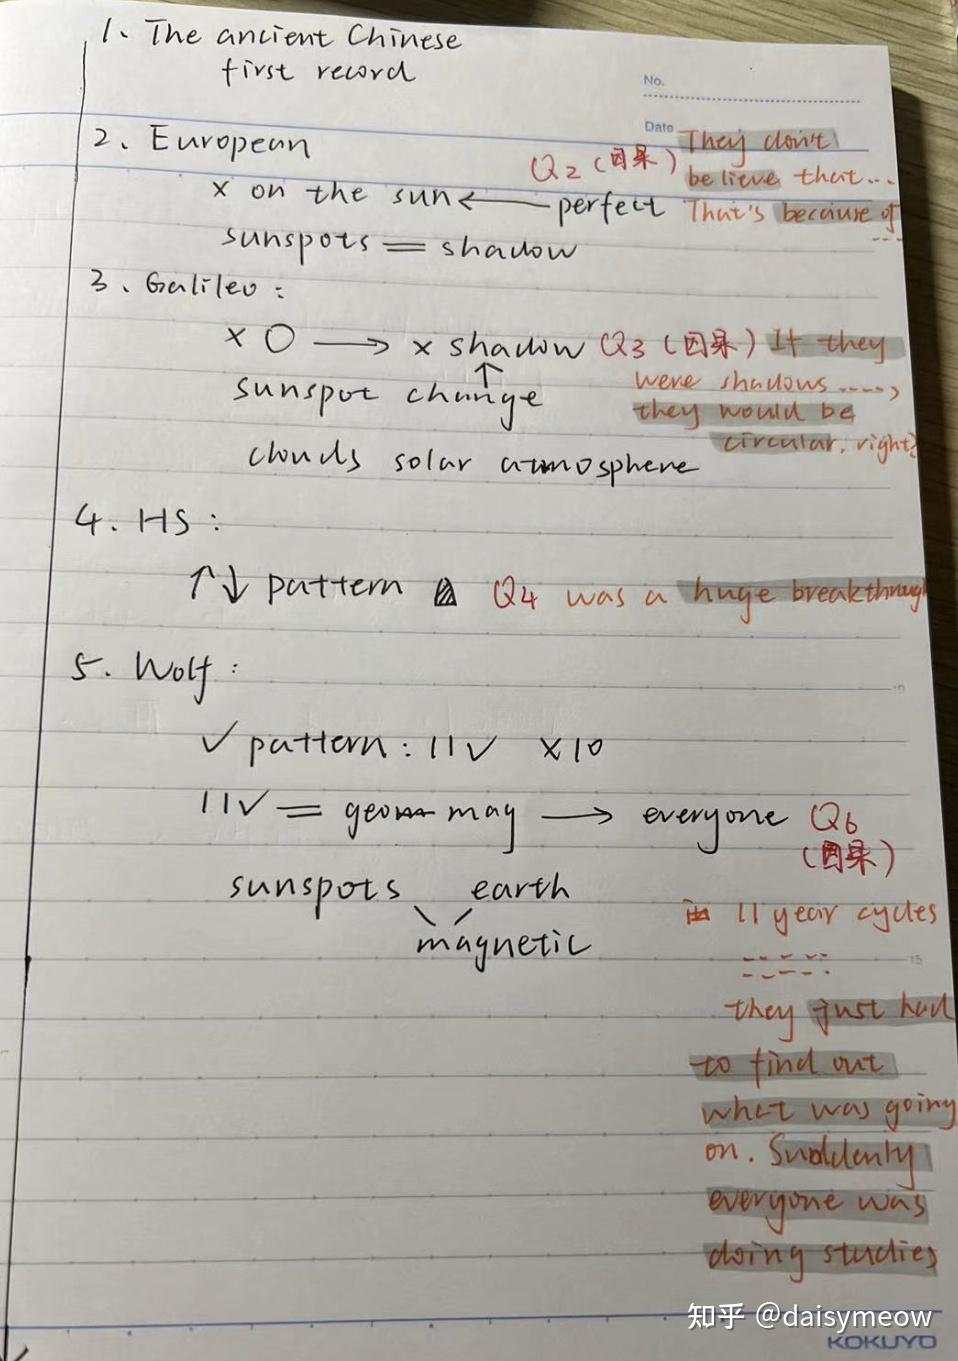 1、The ancient Chinese
first record
No.
Date
2、European
Q2 (因果)
They don't
believe that...
x on the sun ← perfect
That's because of
---
sunspots = shadow
3、Galileo:
x O → x shadow
Q3 (因果) It they
↑
were shadows ....,
sunspot change
they would be
circular, right?
clouds solar atmosphere
4. HS:
↑↓ pattern
Q4 was a huge breakthrough
5. Wolf:
✓ pattern: 11√ x10
11√ = geo mag → everyone
Q6
(因果)
sunspots earth
magnetic
11 year cycles
they just had
to find out
what was going
on. Suddenly
everyone was
doing studies
知乎 @daisymeow
KOKUYO